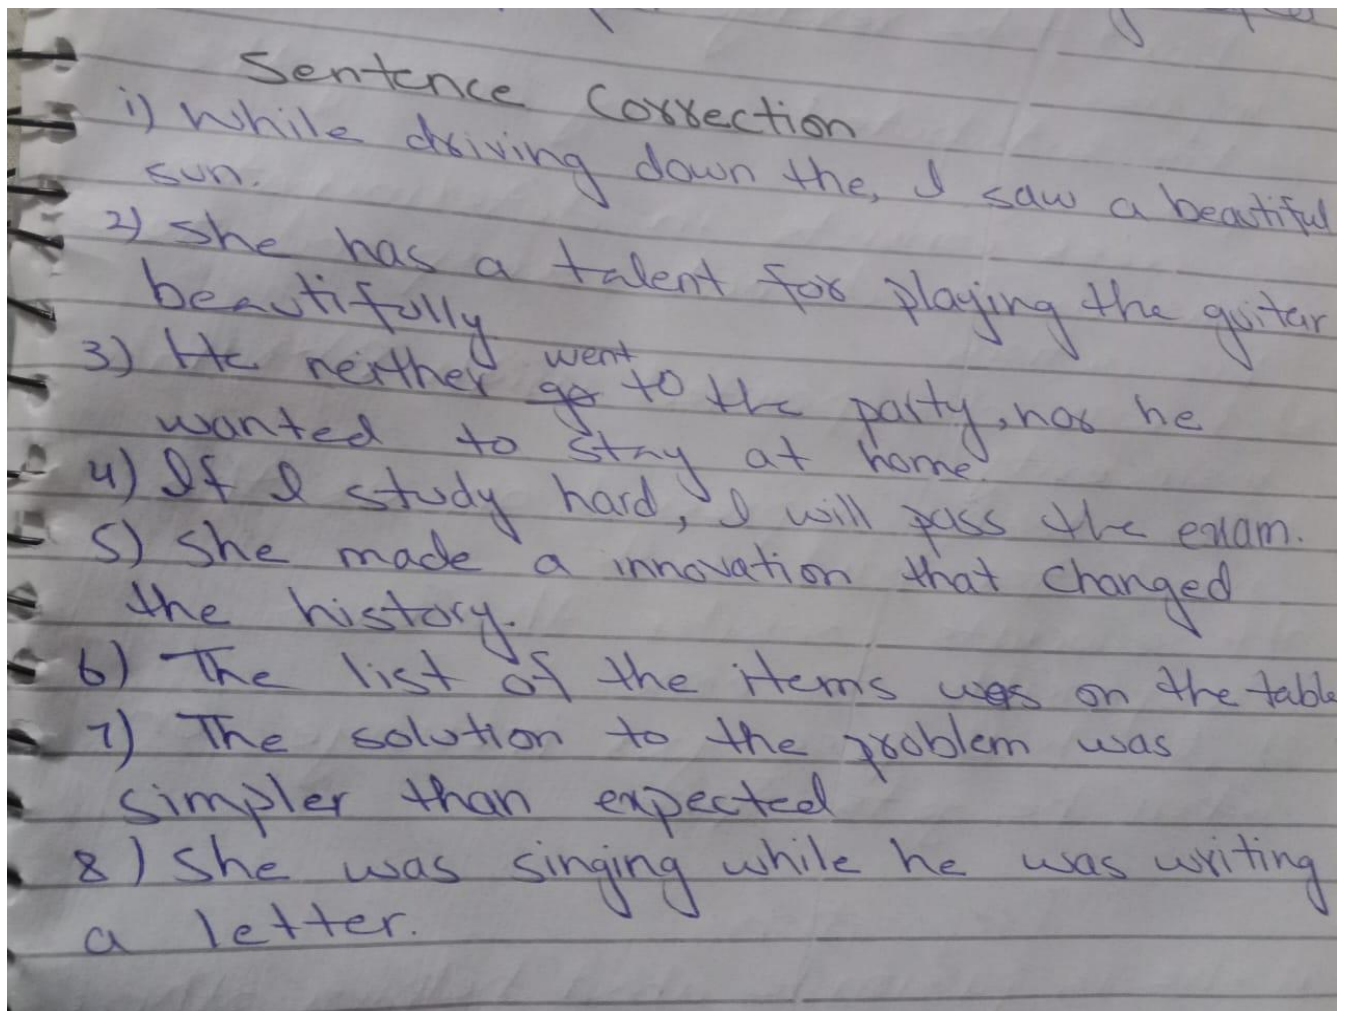 Sentence Correction
1) While driving down the, I saw a beautiful
sun.
2) She has a talent for playing the guitar
beautifully
3) He neither went to the party, nor he
wanted to stay at home.
4) If I study hard, I will pass the exam.
5) She made a innovation that changed
the history.
6) The list of the items was on the table
7) The solution to the problem was
simpler than expected
8) She was singing while he was writing
a letter.